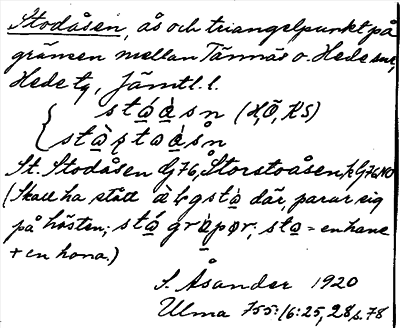 Stodåsen, ås och triangelpunkt på
gränsen mellan Tännäs o. Hede snr,
Hede tg, Jämtl. l.
stọ́ọ̀sn (H,Ö,KS)
St. Stodåsen G76, Storstoåsen, k G76NO
(Skall ha stått älgsto där, parar sig
på hösten; sto = en hane
+ en hona.)
S. Åsander 1920
Ulma 755:16:25, 28, s. 78